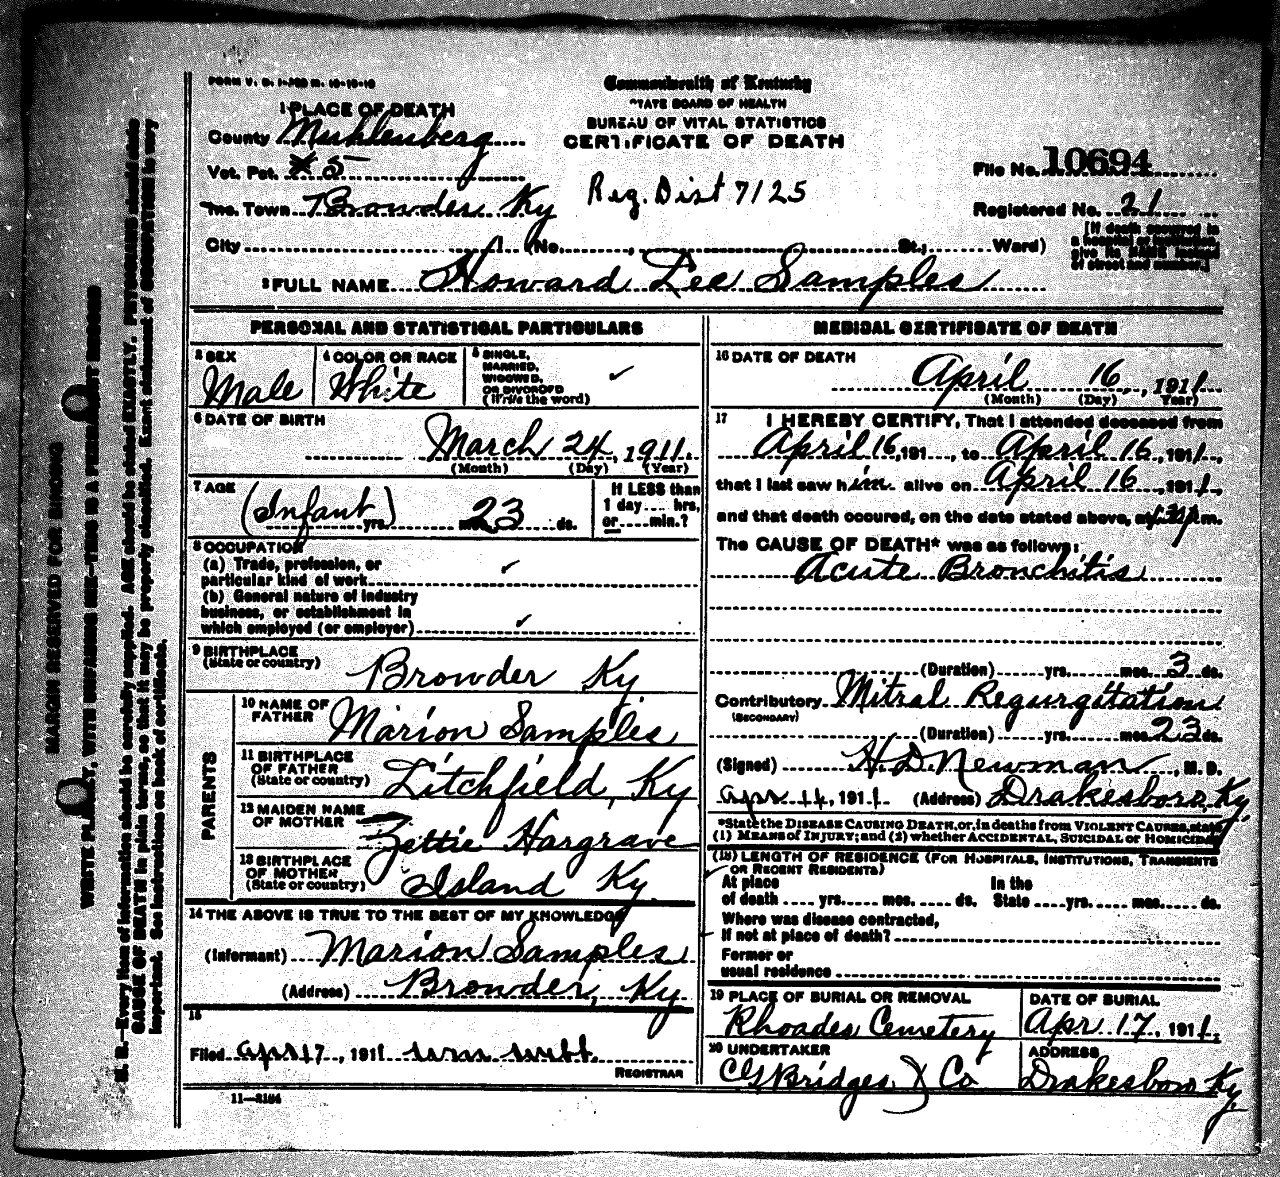 Commonwealth of Kentucky
STATE BOARD OF HEALTH
BUREAU OF VITAL STATISTICS
CERTIFICATE OF DEATH
1 PLACE OF DEATH
County Muhlenberg
Vot. Pct. 5
Inc. Town Browder Ky
Reg. Dist 7125
File No. 10694
Registered No. 21
[If death occurred in a hospital or institution give its NAME instead of street and number.]
City (No. , St.; Ward)
2 FULL NAME Howard Lee Samples
PERSONAL AND STATISTICAL PARTICULARS
3 SEX Male
4 COLOR OR RACE White
5 SINGLE, MARRIED, WIDOWED, OR DIVORCED (Write the word) ✓
6 DATE OF BIRTH
March 24, 1911.
(Month) (Day) (Year)
7 AGE
(Infant) yrs. mos. 23 ds.
If LESS than 1 day.... hrs, or.....min.?
8 OCCUPATION
(a) Trade, profession, or
particular kind of work ✓
(b) General nature of industry
business, or establishment in
which employed (or employer) ✓
9 BIRTHPLACE
(State or country) Browder Ky
PARENTS
10 NAME OF FATHER Marion Samples
11 BIRTHPLACE OF FATHER (State or country) Litchfield, Ky
12 MAIDEN NAME OF MOTHER Zettie Hargrave
13 BIRTHPLACE OF MOTHER (State or country) Island Ky.
14 THE ABOVE IS TRUE TO THE BEST OF MY KNOWLEDGE
(Informant) Marion Samples
(Address) Browder, Ky
15
Filed Apr 17, 1911
REGISTRAR
11—3184
MEDICAL CERTIFICATE OF DEATH
16 DATE OF DEATH
April 16, 1911.
(Month) (Day) Year)
17 I HEREBY CERTIFY, That I attended deceased from
April 16, 191 , to April 16, 1911,
that I last saw him alive on April 16, 1911,
and that death occured, on the date stated above, at m.
The CAUSE OF DEATH* was as follows:
Acute Bronchitis
(Duration) yrs. mos. 3 ds.
Contributory Mitral Regurgitation
(SECONDARY)
(Duration) yrs. mos. 23 ds.
(Signed) H. D. Newman, M. D.
Apr , 1911 (Address) Drakesboro, Ky.
*State the DISEASE CAUSING DEATH, or, in deaths from VIOLENT CAUSES, state
(1) MEANS OF INJURY; and (2) whether ACCIDENTAL, SUICIDAL OR HOMICIDAL
(18) LENGTH OF RESIDENCE (FOR HOSPITALS, INSTITUTIONS, TRANSIENTS
OR RECENT RESIDENTS)
At place of death yrs. mos. ds. In the State yrs. mos. ds.
Where was disease contracted,
If not at place of death?
Former or
usual residence
19 PLACE OF BURIAL OR REMOVAL Rhoades Cemetery
DATE OF BURIAL Apr 17, 1911.
20 UNDERTAKER CG Bridges & Co
ADDRESS Drakesboro Ky.
MARGIN RESERVED FOR BINDING
WRITE PLAINLY, WITH UNFADING INK—THIS IS A PERMANENT RECORD
N. B.—Every item of information should be carefully supplied. AGE should be stated EXACTLY. PHYSICIANS should state
CAUSE OF DEATH in plain terms, so that it may be properly classified. Exact statement of OCCUPATION is very
important. See instructions on back of certificate.